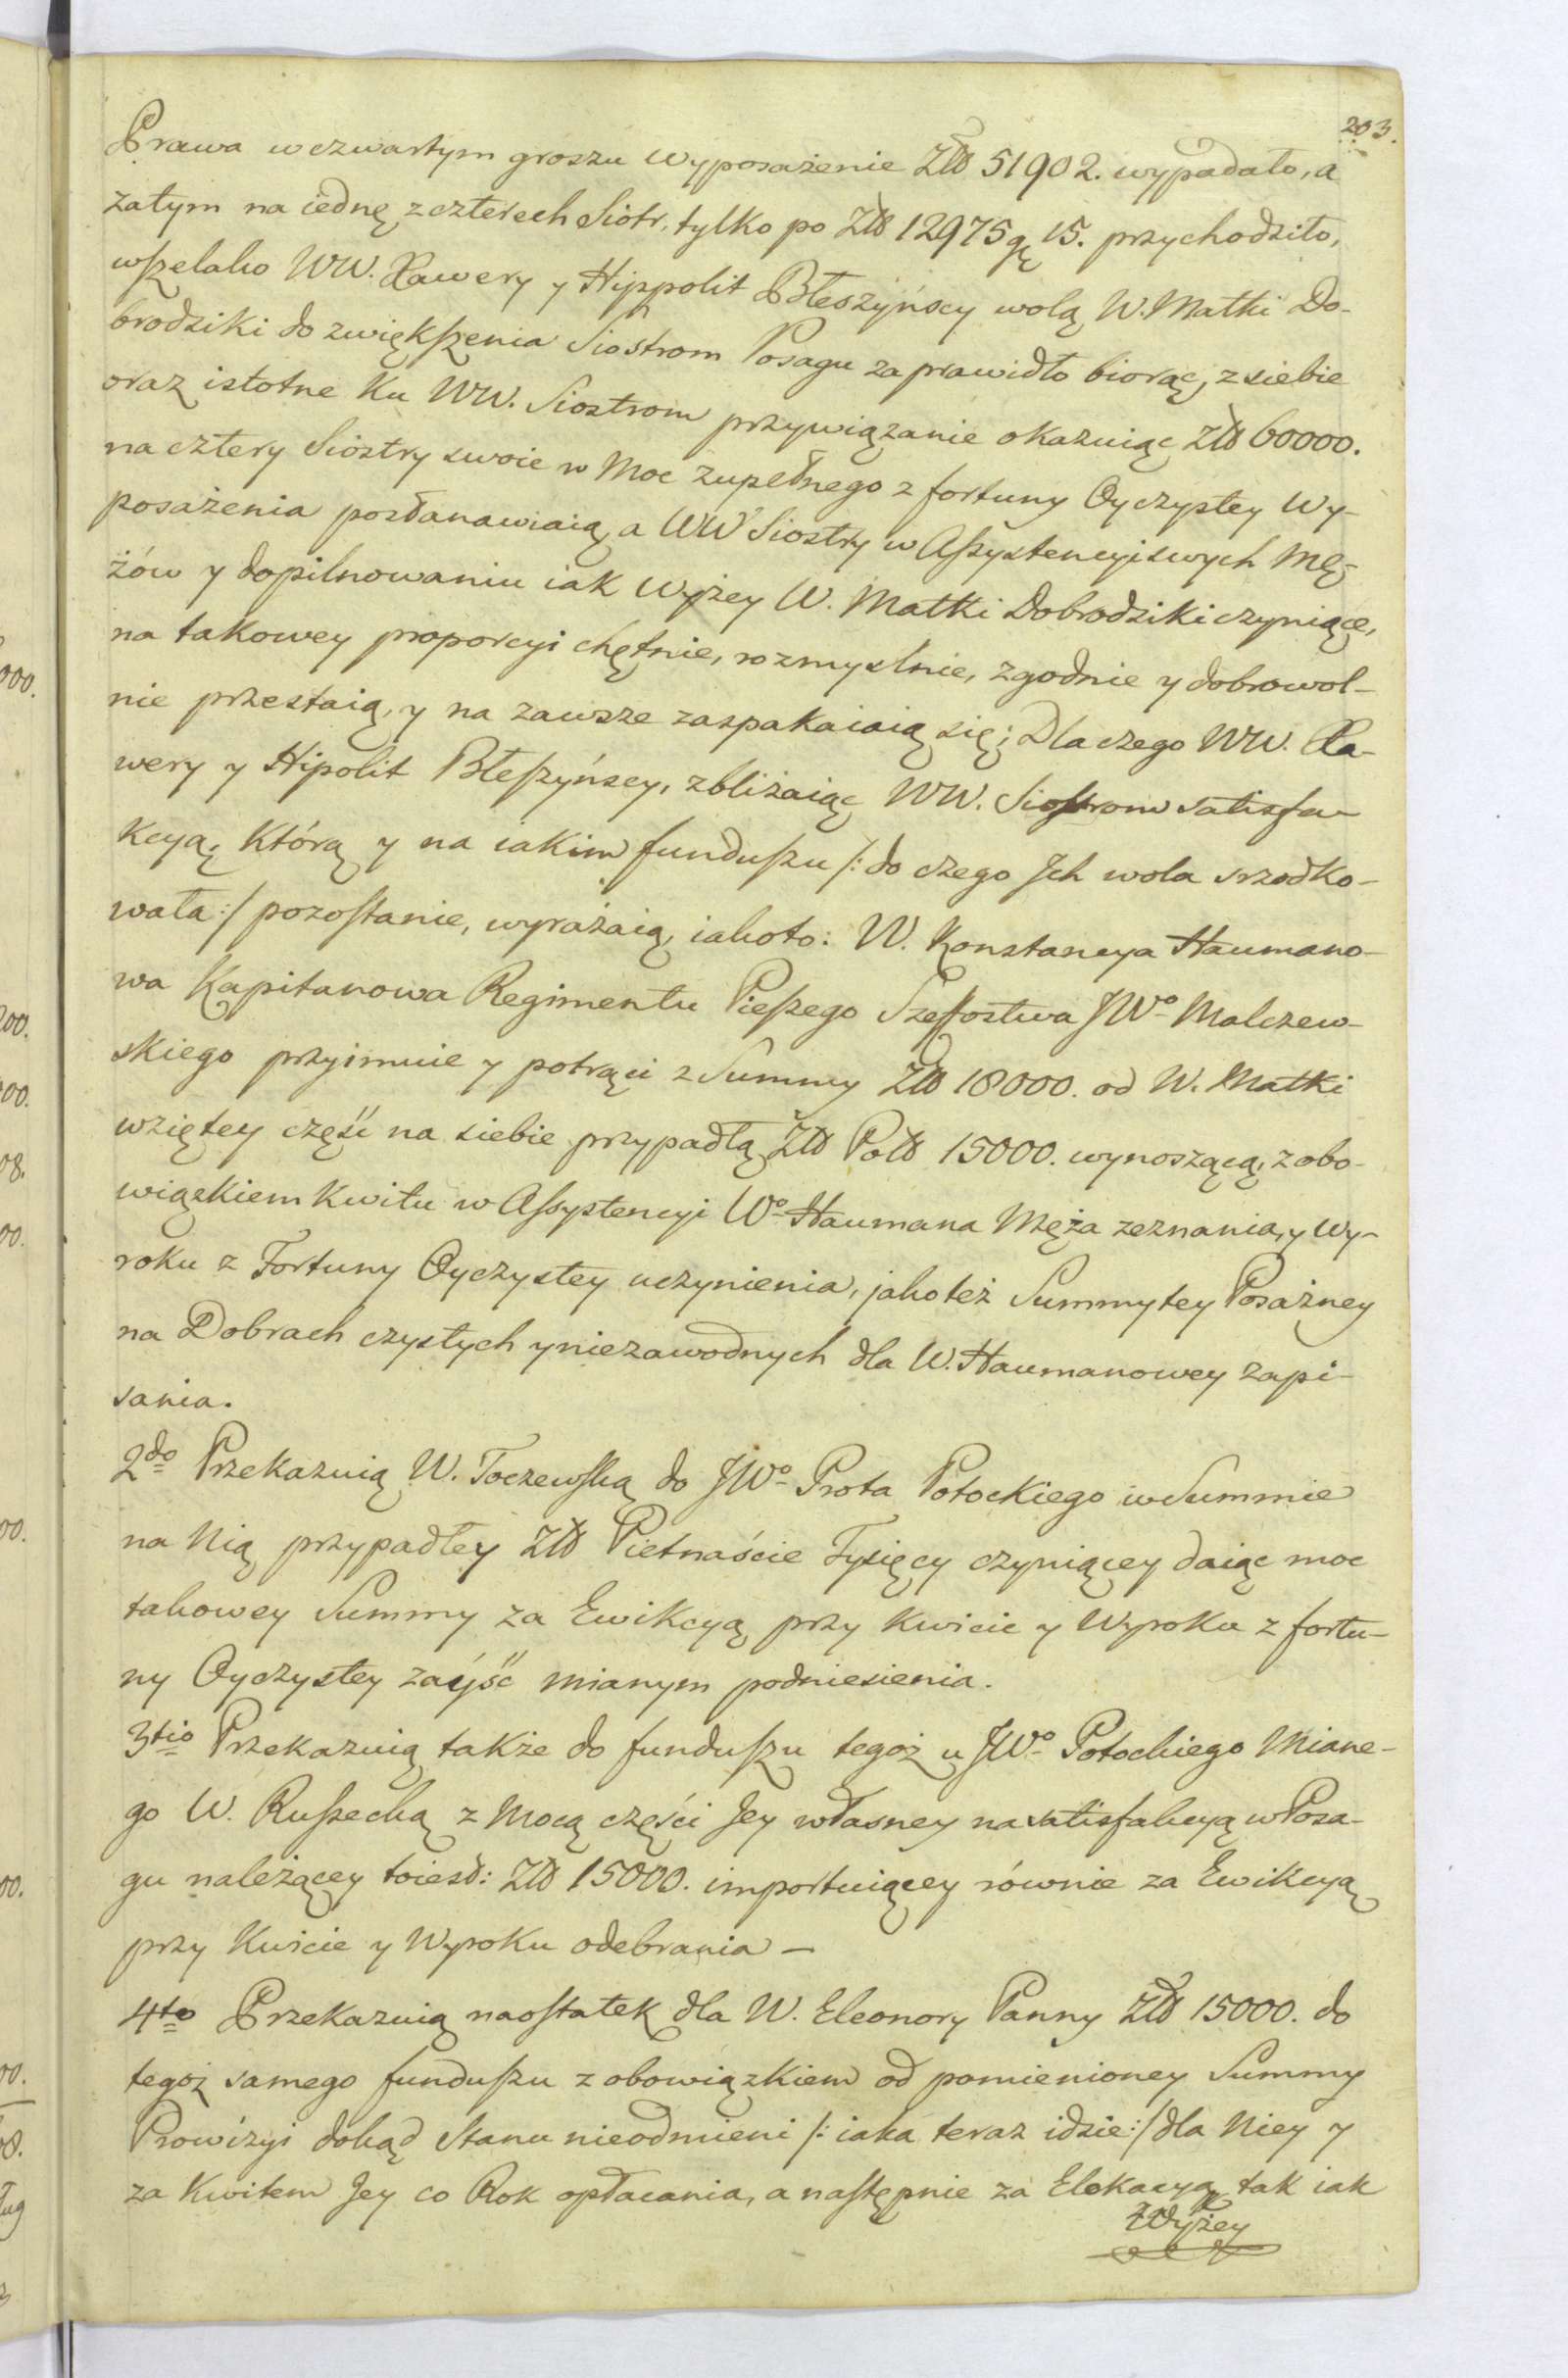 203.
Prawa w czwartym groszu Wyposażenie Złł 51902. wypadało, a
zatym na iednę z czterech Siótr, tylko po Złł 12975 gę 15. przychodziło,
wszelako WW. Xawery y Hippolit Błeszyńscy wolą W. Matki Do-
brodziki do zwiększenia Siostrom Posagu za prawidło biorąc, z siebie
oraz istotne Ku WW. Siostrom przywiązanie okazuiąc Złł 60000.
na cztery Siostry swoie w Moc zupełnego z fortuny Oyczystey Wy-
posażenia postanawiaią, a WW Siostry w Assystencyi swych Mę-
żów y dopilnowaniu iak Wyżey W. Matki Dobrodziki czyniące,
na takowey proporcyi chętnie, rozmyslnie, zgodnie y dobrowol-
nie przestaią, y na zawsze zaspakaiaią się; Dla czego WW. Xa-
wery y Hipolit Błeszyńscy, zbliżaiąc WW. Siostrom satisfa-
kcyą, Którą y na iakim funduszu /: do czego Jch wola srzodko-
wała :/ pozostanie, wyrażaią, iako to: W. Konstancya Haumano-
wa Kapitanowa Regimentu Pieszego Szefostwa JWº Malczew-
skiego przyimuie y potrąci z Summy Złł 18000. od W. Matki
wziętey część na siebie przypadłą Złł Poll 15000. wynoszącą, z obo-
wiązkiem Kwitu w Assystencyi Wº Haumana Męża zeznania, y Wy-
roku z Fortuny Oyczystey uczynienia, jako też Summy tey Posażney
na Dobrach czystych y niezawodnych dla W. Haumanowey zapi-
sania.
2do Przekazuią W. Toczewską do JWº Prota Potockiego w Summie
na Nią przypadłey Złł Pietnaście Tysięcy czyniącey daiąc moc
takowey Summy za Ewikcyą przy Kwicie y Wyroku z fortu-
ny Oyczystey zayść mianym podniesienia.
3tio Przekazuią także do funduszu tegoż u JWº Potockiego Miane-
go W. Ruszecką z Mocą części Jey własney na satisfakcyą w Posa-
gu należącey toiest: Złł 15000. importuiącey równie za Ewikcyą
przy Kwicie y Wyroku odebrania —
4to Przekazuią naostatek dla W. Eleonory Panny Złł 15000. do
tegoż samego funduszu z obowiązkiem od pomienioney Summy
Prowizyi dokąd Stanu nieodmieni /: iaka teraz idzie :/ dla Niey y
za Kwitem Jey co Rok opłacania, a następnie za Elokacyą tak iak
Wyżey